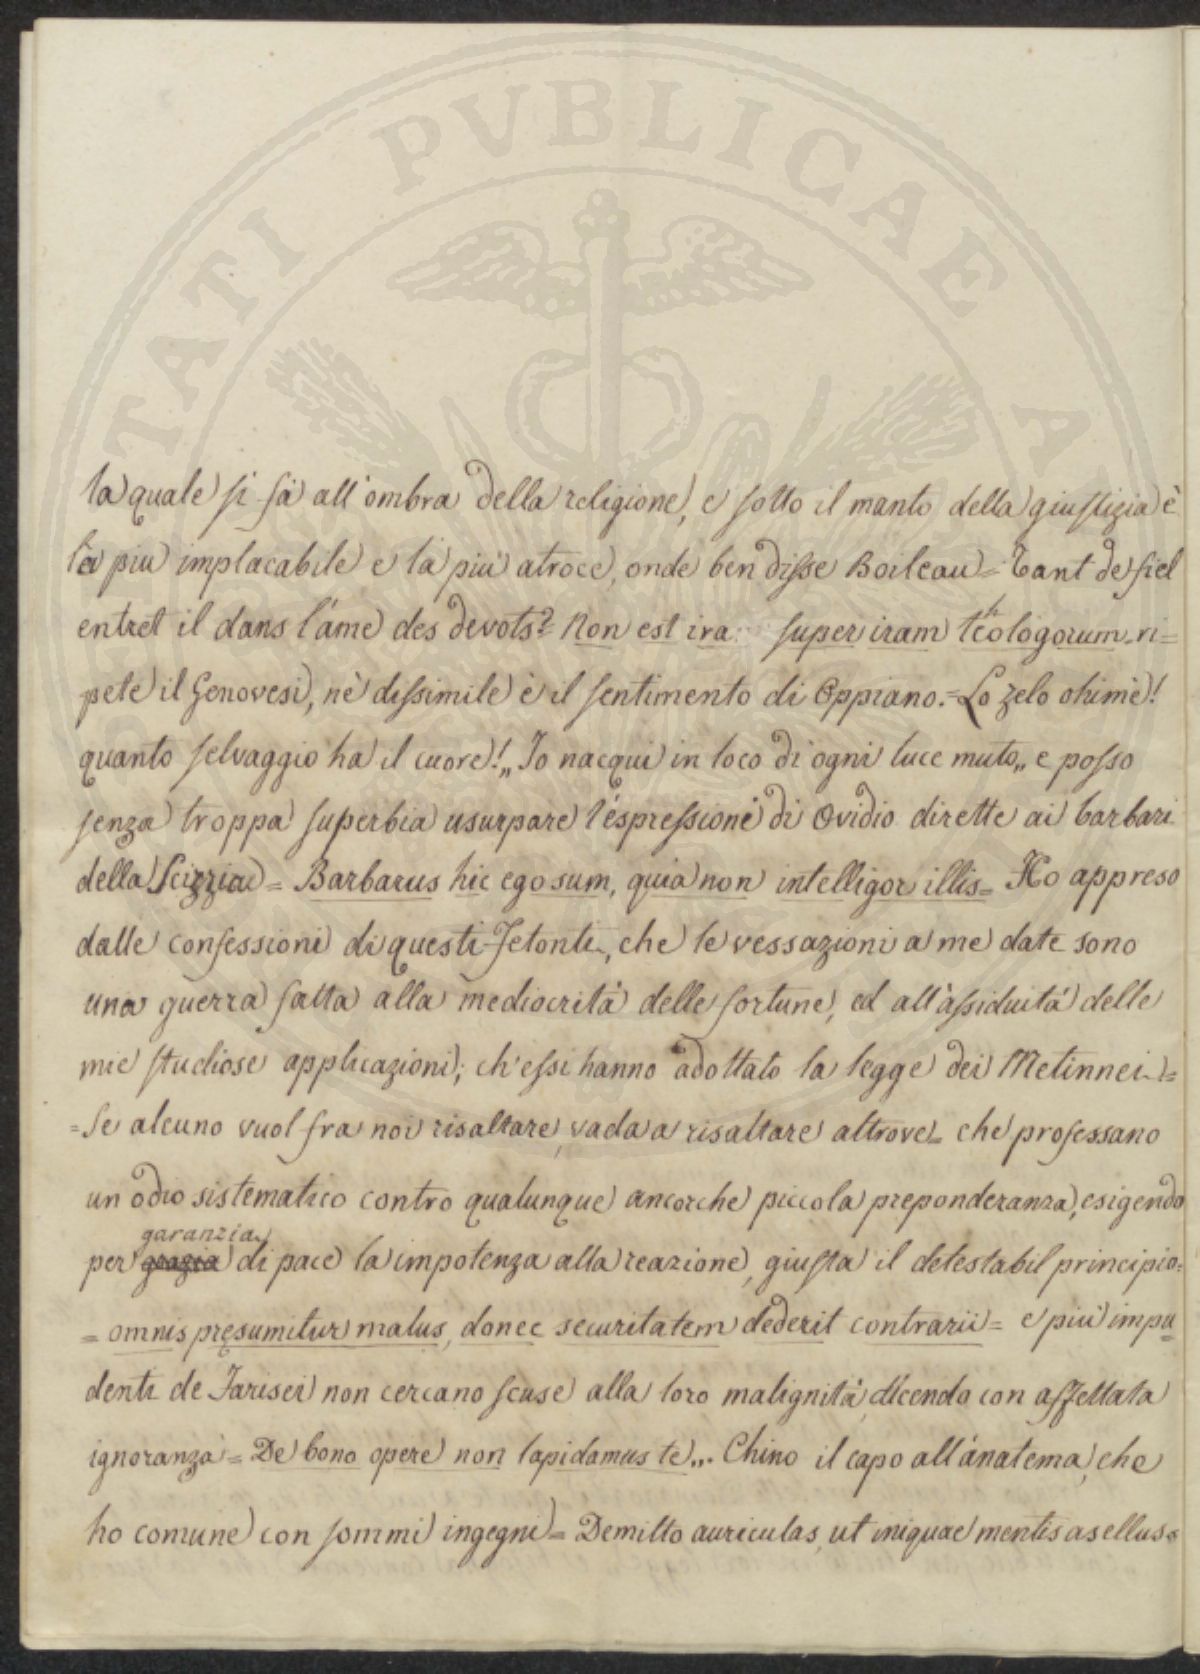 TATI PVBLICAE A
la quale si fà all'ombra della religione, e sotto il manto della giustizia è
la piu implacabile e la più atroce, onde ben disse Boileau = Tant de fiel
entret il dans l'áme des devots? = Non est ira super iram theologorum = ri=
pete il Genovesi, nè dissimile è il sentimento di Oppiano. = Lo zelo ohimè!
quanto selvaggio ha il cuore! „ Io nacqui in loco di ogni luce muto „ e posso
senza troppa superbia usurpare l'espressione di Ovidio dirette ai barbari
della Scizzia = Barbarus hic ego sum, quia non intelligor illis = Ho appreso
dalle confessioni di questi Fetonti, che le vessazioni a me date sono
una guerra fatta alla mediocrità delle fortune, ed all'assiduità delle
mie studiose applicazioni; ch'essi hanno adottato la legge dei Metinnei =
= Se alcuno vuol fra noi risaltare, vada a risaltare altrove = che professano
un odio sistematico contro qualunque ancorche piccola preponderanza, esigendo
garanzia
per grazia di pace la impotenza alla reazione, giusta il detestabil principio =
= omnis presumitur malus, donec securitatem dederit contrarii = e più impu=
denti de Farisei non cercano scuse alla loro malignità, dicendo con affettata
ignoranza = De bono opere non lapidamus te „. Chino il capo all'ánatema, che
ho comune con sommi ingegni = Demitto auriculas, ut iniquae mentis asellus =